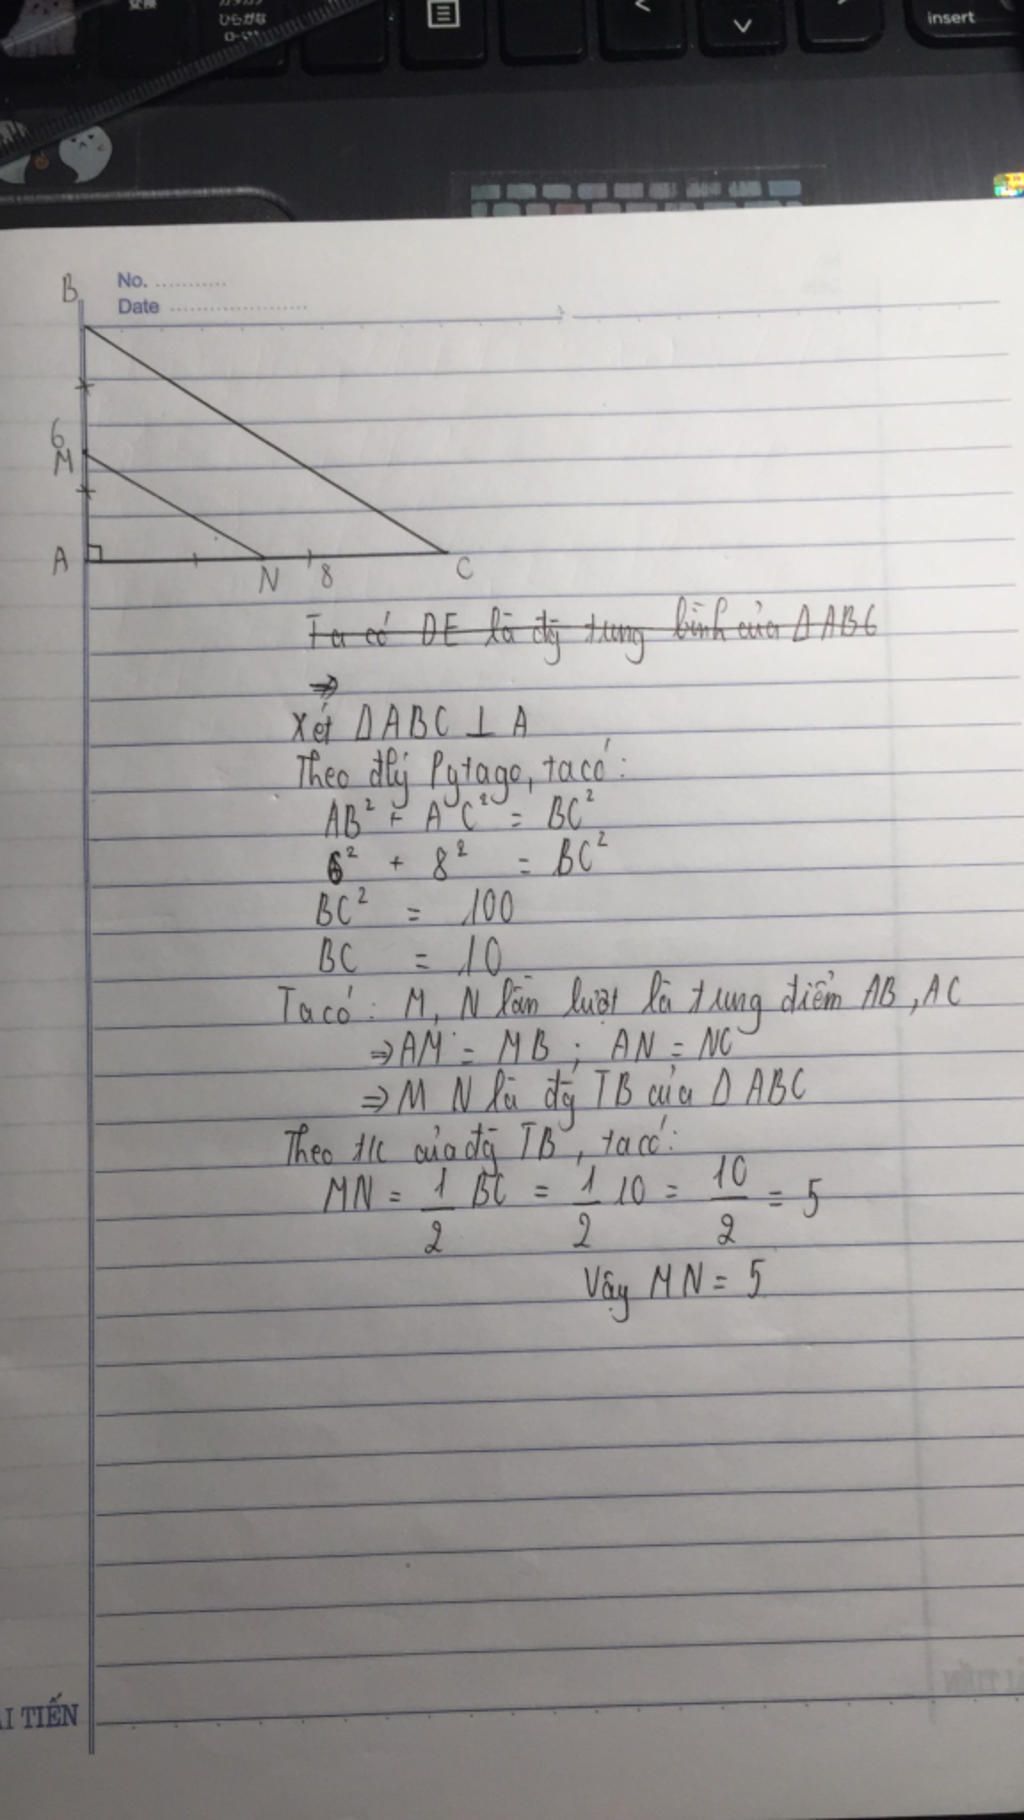 変換
ひらがな
insert
No. ...........
Date .....................
B
6
M
A
N
8
C
Ta có DE là đg̃ trung bình của Δ ABC
⇒
Xét Δ ABC ⊥ A
Theo đlý Pytago, ta có:
AB² + AC² = BC²
6² + 8² = BC²
BC² = 100
BC = 10
Ta có: M, N lần lượt là trung điểm AB, AC
⇒ AM = MB ; AN = NC
⇒ M N là đg̃ TB của Δ ABC
Theo t/c của đg̃ TB, ta có:
MN = 1/2 BC = 1/2 10 = 10/2 = 5
Vậy MN = 5
ẢI TIẾN